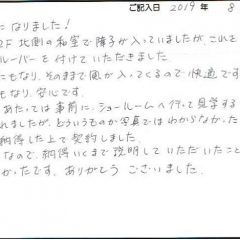 ご記入日 2019 年 8
になりました！
2F 北側の和室で障子が入っていましたが、これを
ルーバーを付けていただきました。
にもなり、そのままで風が入ってくるので快適です
もなり、安心です。
あたっては事前に、ショールームへ行って見学する
れましたが、どういうものか写真ではわからなかった
納得した上で契約しました。
なので、納得いくまで説明していただいたこと
かったです。ありがとうございました。